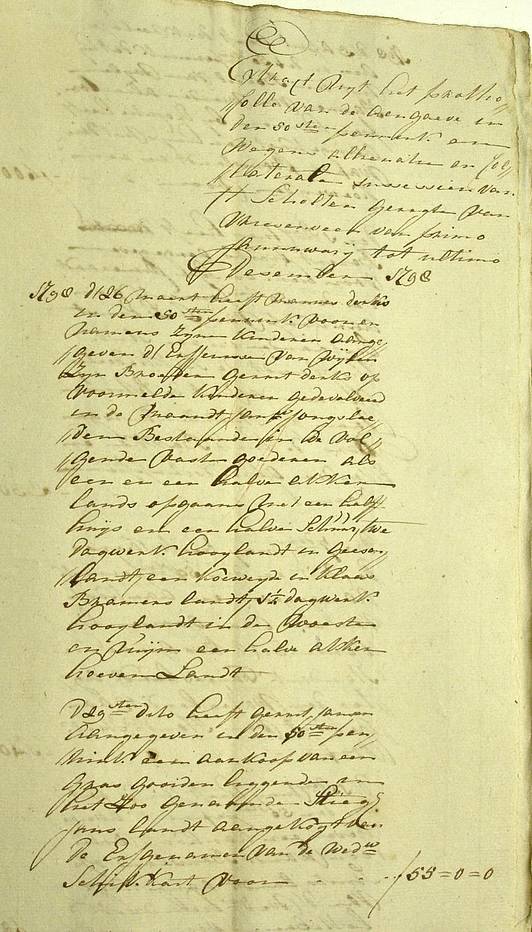 Extract Uijt het prottho,
colle van de aengaeve in
den 50 sten pennink en
Wegens alienatie en Col,
lateraele Successien van
t Scholten Geregte van
Vriesenveen van primo
Januwarij tot ultimo
Desember 1798
1798 d 26 Maert heeft Mannes derks
in den 50 sten pennink voor en
namens Zijn Kinderen aenge,
geven d Erffenisse van Wijlen
Zijn Broeder Gerrit derks op
voormelde Kinderen gedevolveerd
in de Maandt Jongslee,
den Bestaende in de vol,
gende vast goederen als
een en een halve akker
lands opgaans met een half
huijs en een halve Schuur, twe
dagwerk hooijlandt in Geester,
landt een Koeweijde in Klaas
Bramers landt, 1½ dagwerk
hooijlandt in de Woeste
en een halve akker
hoeven Landt
D 29 sten dito heeft Gerrit Jansen
aangegeven in den 50 sten pen,
nink een aankoop van een
Gras gooiden leggende in
het Loo genaemde
Jans landt aangekogt van
De Erfgenamen van de Wedw
Schipkart voor .. f 55=0=0